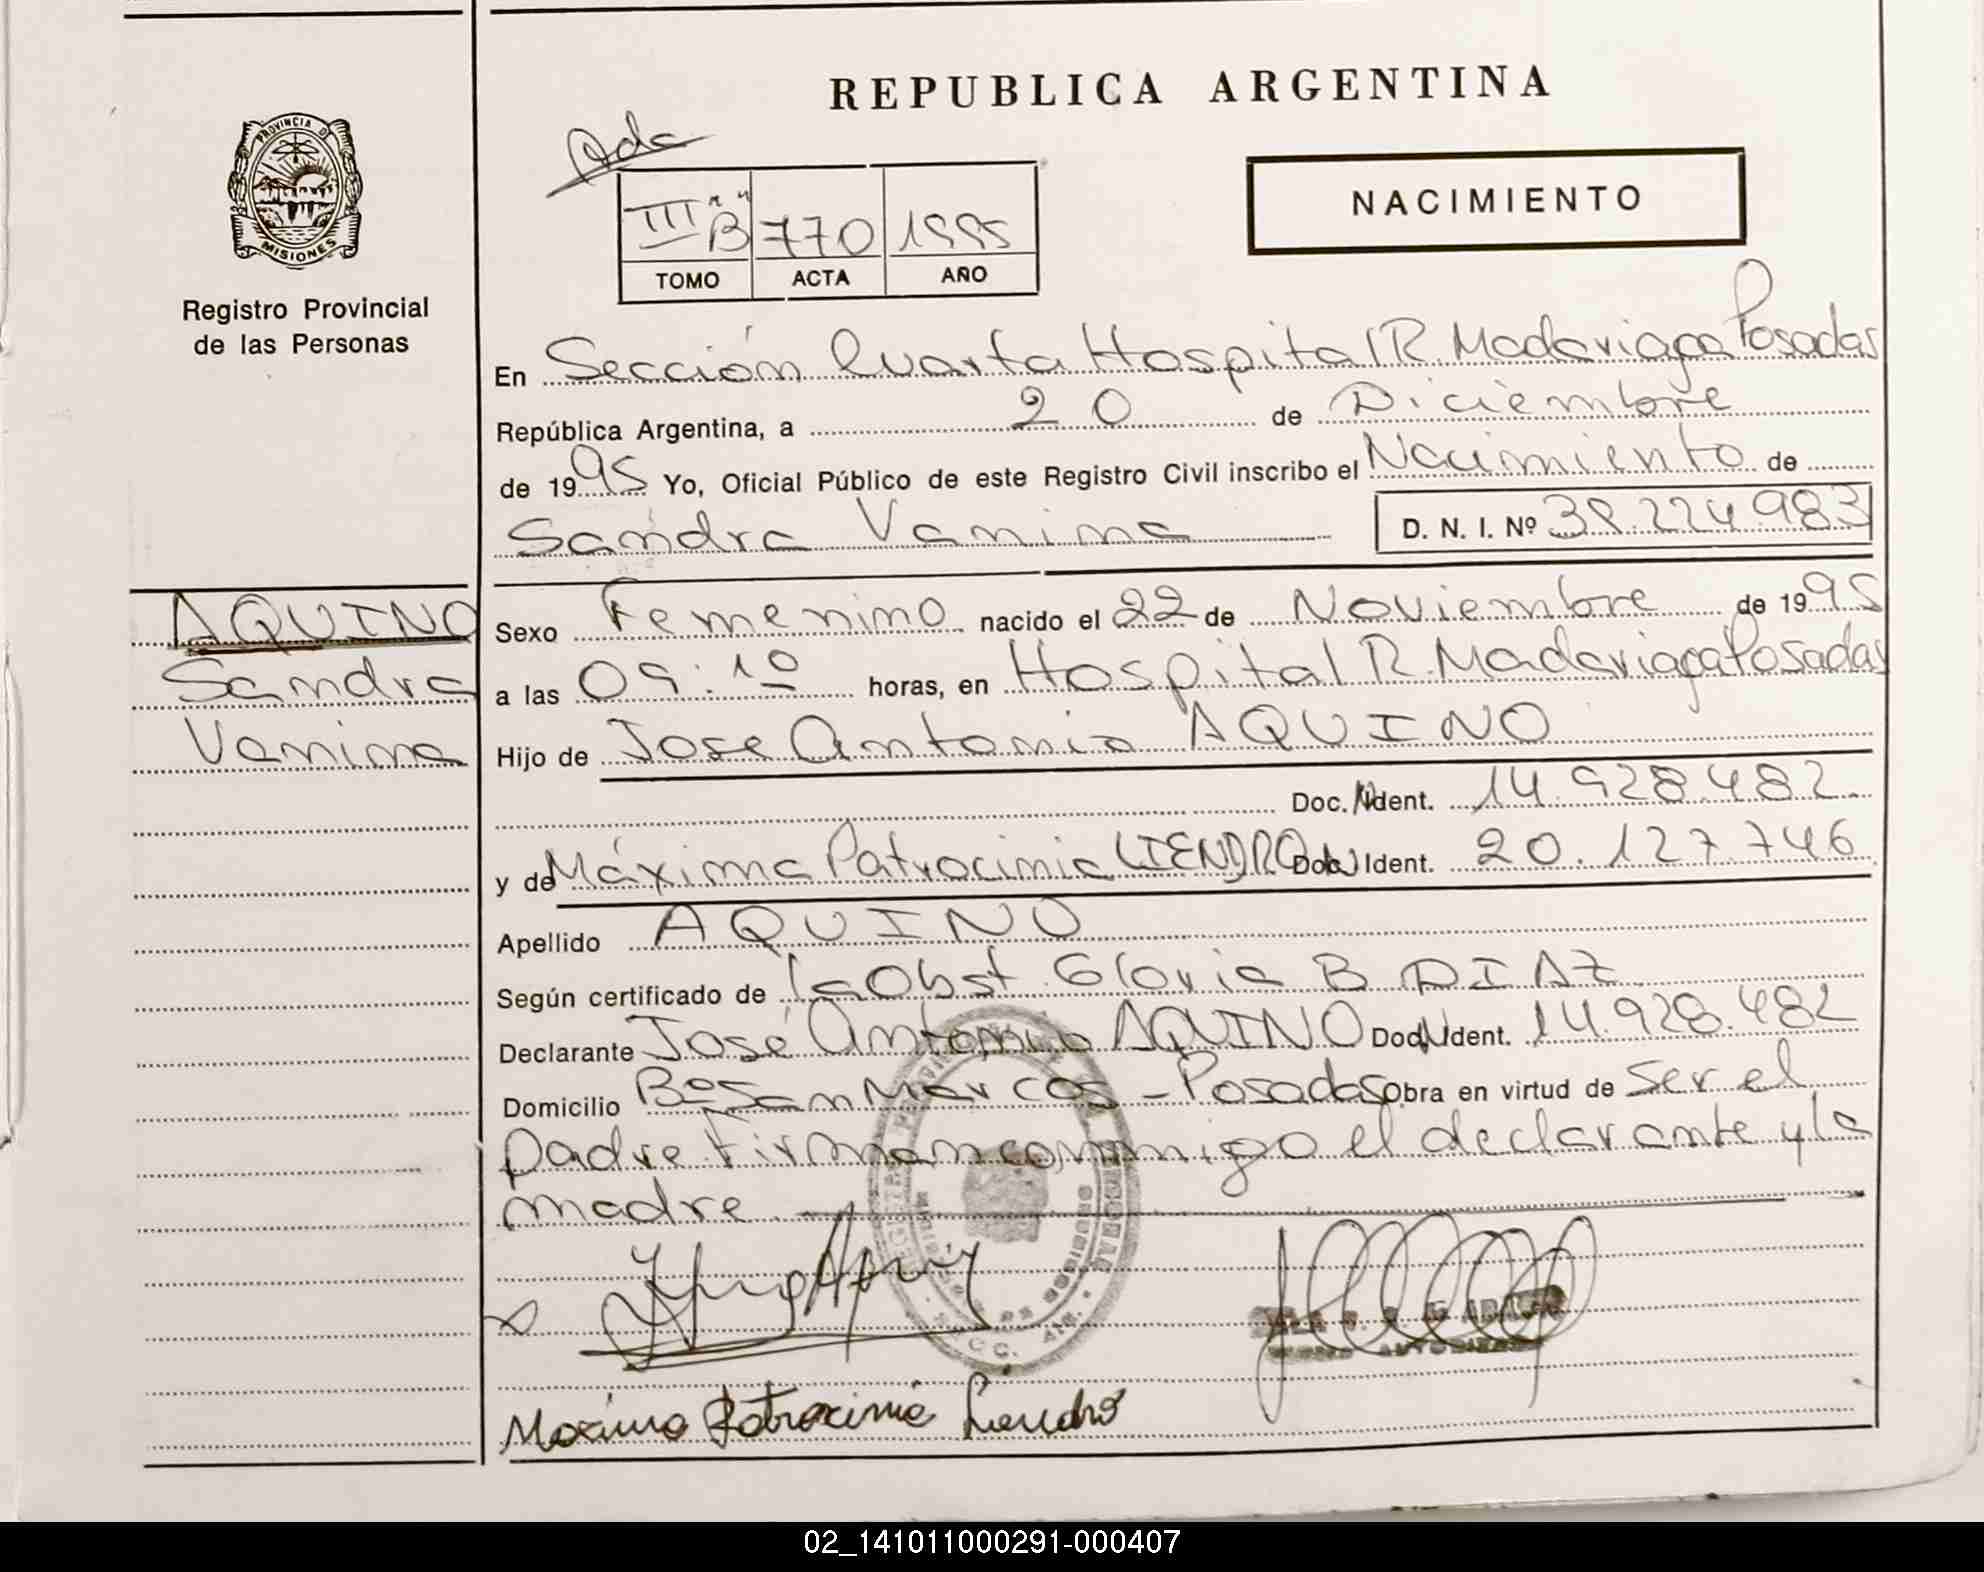 REPUBLICA ARGENTINA
NACIMIENTO
III "B" 770 1995
TOMO ACTA AÑO
PROVINCIA D
MISIONES
Registro Provincial
de las Personas
En Sección Cuarta Hospital R. Madariaga Posadas
República Argentina, a 20 de Diciembre
de 1995 Yo, Oficial Público de este Registro Civil inscribo el Nacimiento de
Sandra Vanina
D. N. I. Nº 39.224.983
AQUINO
Sandra
Vanina
Sexo Femenino nacido el 22 de Noviembre de 1995
a las 09:10 horas, en Hospital R. Madariaga Posadas
Hijo de Jose Antonio AQUINO
Doc. Ident. 14.928.482
y de Máxima Patrocinia LIENDRO Doc. Ident. 20.127.746
Apellido AQUINO
Según certificado de la Obst. Gloria B DIAZ
Declarante José Antonio AQUINO Doc. Ident. 14.928.482
Domicilio Bº San Marcos - Posadas Obra en virtud de Ser el
padre. Firman conmigo el declarante y la
madre.
Maxima Patrocinia Liendro
02_141011000291-000407